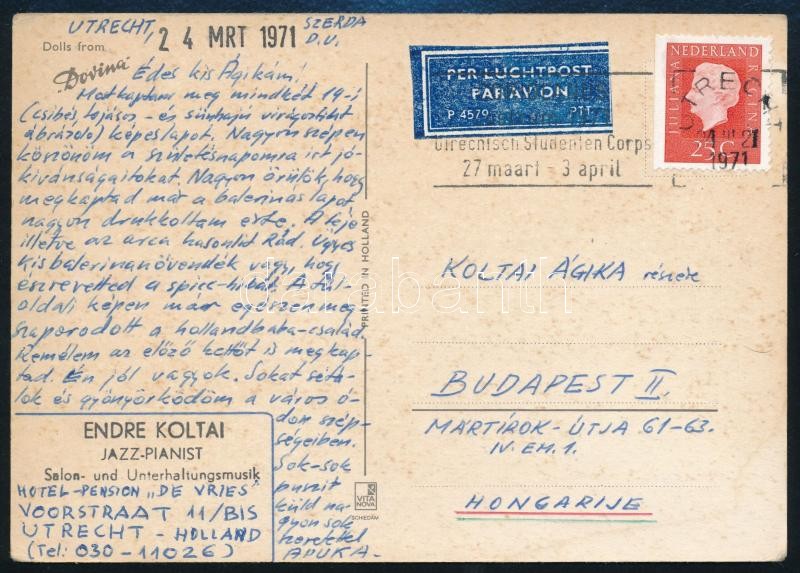 UTRECHT, 24 MRT 1971 SZERDA
D.U.
Dolls from
Dovina
Édes kis Ágikám!
Megkaptam meg mindkét 19-i
(csibés, tojásos - és sünhajú virágostént
ábrázoló) képeslapot. Nagyon szépen
köszönöm a születésnapomra írt jó-
kívánságaitokat. Nagyon örülök, hogy
megkaptad már a balerinás lapot
nagyon drukkoltam érte. A feje
illetve az arca hasonlít Rád. Ügyes
kis balerinanövendék vagy, hogy
észrevetted a spicc-hibát. A túl-
oldali képen már egészen meg
szaporodott a hollandbaba-család.
Remélem az előző kettőt is megkap-
tad. Én jól vagyok. Sokat sétá-
lok és gyönyörködöm a város ó-
don szép-
ségeiben.
Sok-sok
puszit
küld na-
gyon sok
szeretettel
APUKA-
ENDRE KOLTAI
JAZZ-PIANIST
Salon- und Unterhaltungsmusik
HOTEL-PENSION „DE VRIES"
VOORSTRAAT 11/BIS
UTRECHT - HOLLAND
(Tel: 030-11026)
PRINTED IN HOLLAND
VITA
NOVA
SCHIEDAM
PER LUCHTPOST
PAR AVION
P 4579 PTT
Utrechtsch Studenten Corps
27 maart - 3 april
NEDERLAND
JULIANA REGINA
25c
UTRECHT
1971
KOLTAI ÁGIKA részére
BUDAPEST II.
MÁRTÍROK-ÚTJA 61-63.
IV. EM. 1.
HONGARIJE
darabanth